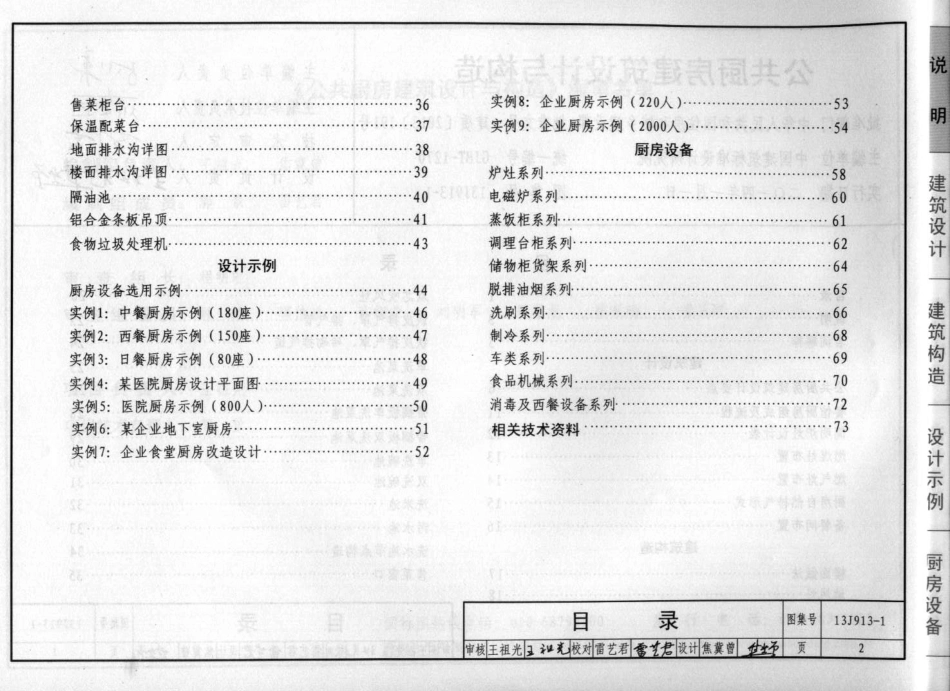 售菜柜台 36
保温配菜台 37
地面排水沟详图 38
楼面排水沟详图 39
隔油池 40
铝合金条板吊顶 41
食物垃圾处理机 43
设计示例
厨房设备选用示例 44
实例1：中餐厨房示例（180座） 46
实例2：西餐厨房示例（150座） 47
实例3：日餐厨房示例（80座） 48
实例4：某医院厨房设计平面图 49
实例5：医院厨房示例（800人） 50
实例6：某企业地下室厨房 51
实例7：企业食堂厨房改造设计 52
实例8：企业厨房示例（220人） 53
实例9：企业厨房示例（2000人） 54
厨房设备
炉灶系列 58
电磁炉系列 60
蒸饭柜系列 61
调理台柜系列 62
储物柜货架系列 64
脱排油烟系列 65
洗刷系列 66
制冷系列 67
车类系列 69
食品机械系列 70
消毒及西餐设备系列 72
相关技术资料 73
目 录 图集号 13J913-1
审核 王祖光 校对 雷艺君 雷艺君 设计 焦冀曾 页 2
说明
建筑设计
建筑构造
设计示例
厨房设备